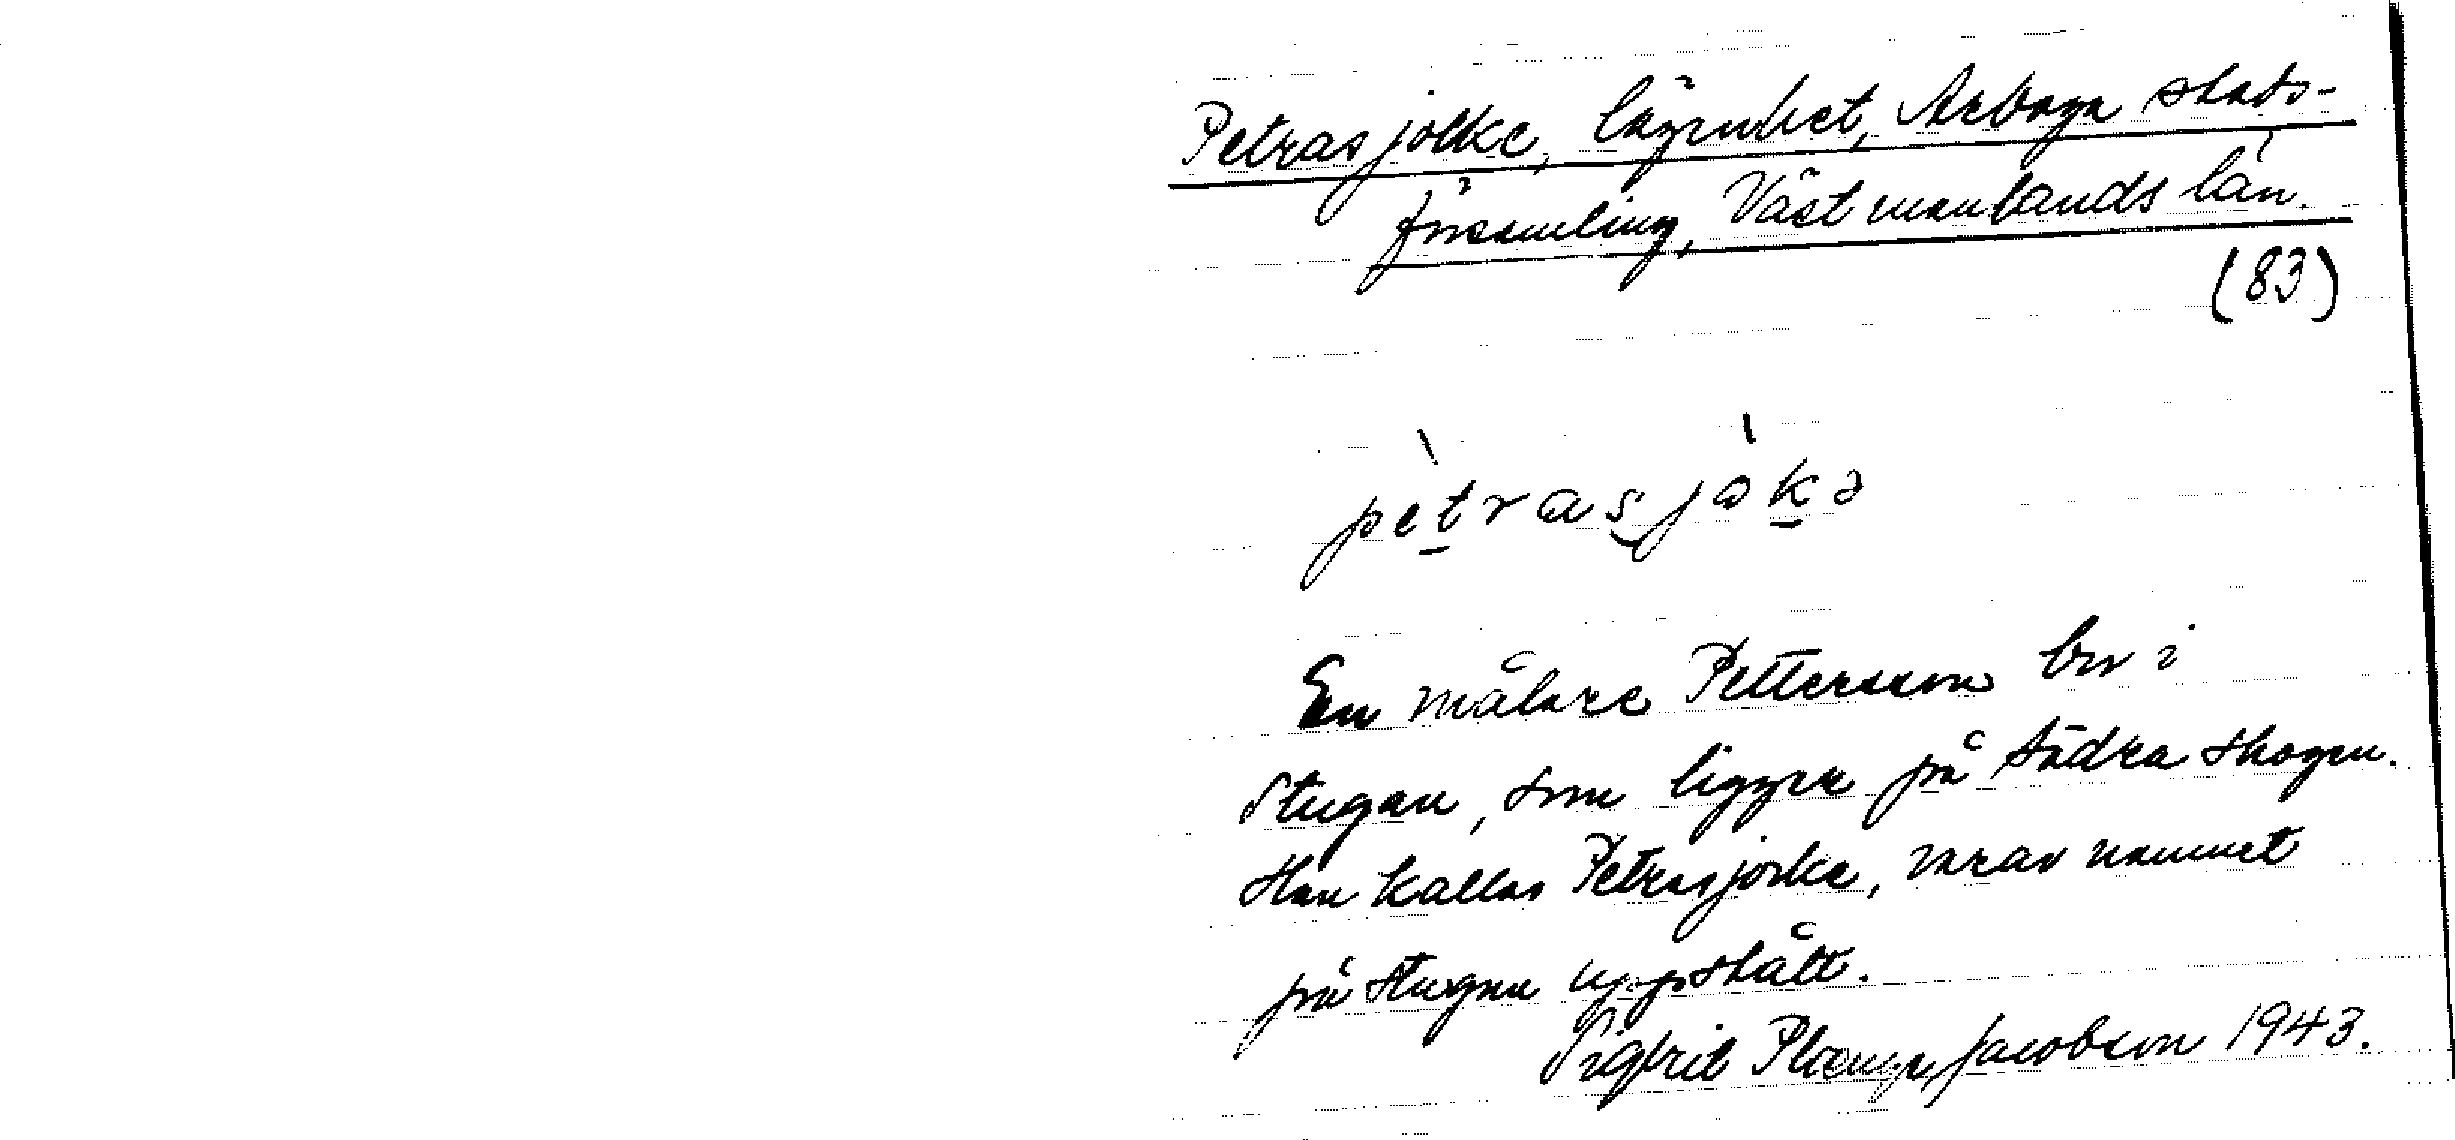 Petrasjolke, lägenhet, Arboga stads-
församling, Västmanlands län.
(83)
pètrasjòkə
En målare Pettersson bor i
stugan, som ligger på Södra skogen.
Han kallas Petrasjolke, varav namnet
på stugan uppstått.
Sigfrid Plænge Jacobson 1943.